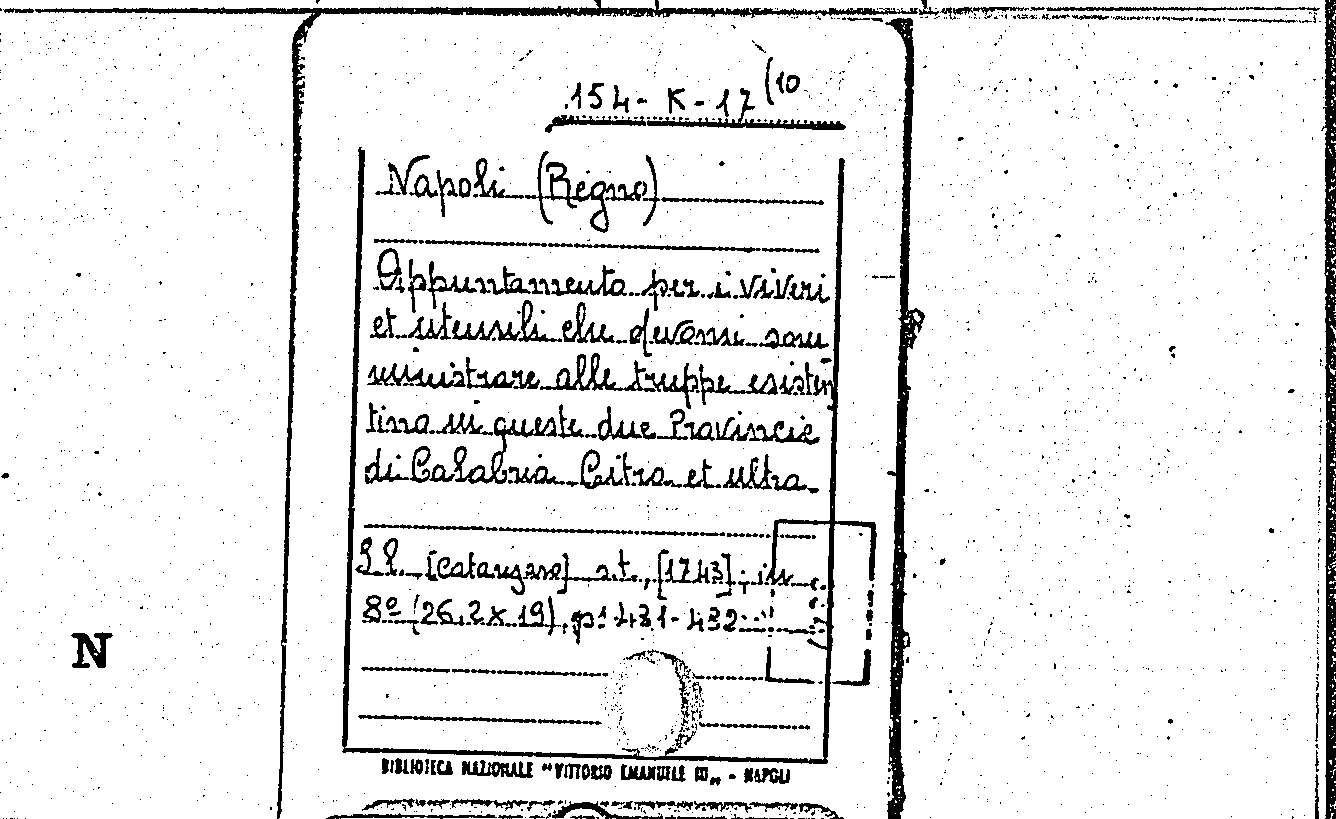 154-K-17 (10
Napoli (Regno)
Appuntamento per i viveri
et utensili che devonsi som
ministrare alle truppe esisten
tino in queste due Provincie
di Calabria Citra et ultra
S.l. [Catanzaro] s.t., [1743]; in
8º (26,2 x 19), p: 431-432
N
BIBLIOTECA NAZIONALE "VITTORIO EMANUELE III„ - NAPOLI